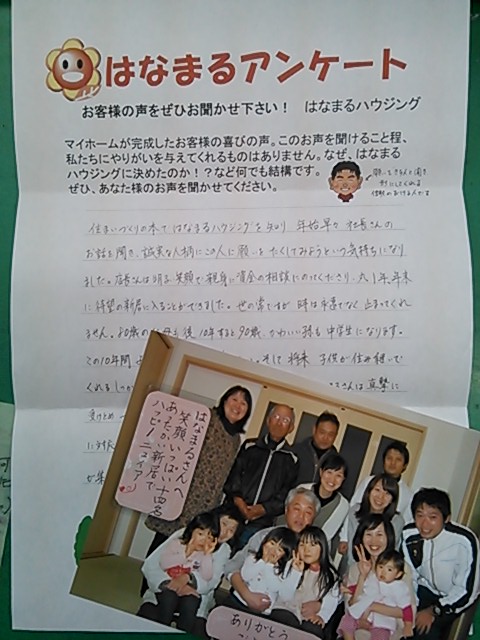 はなまるアンケート
お客様の声をぜひお聞かせ下さい！　はなまるハウジング
マイホームが完成したお客様の喜びの声。このお声を聞けること程、
私たちにやりがいを与えてくれるものはありません。なぜ、はなまる
ハウジングに決めたのか！？など何でも結構です。
ぜひ、あなた様のお声を聞かせてください。
住まいづくりの本で はなまるハウジングを知り 年始早々 社長さんの
お話を聞き、誠実な人柄にこの人に願いをたくしてみようという気持ちになり
ました。店長さんは明るく笑顔で親身に資金の相談にのってくださり、
に待望の新居に入ることができました。世の常ですが 時は待ってくれ
ません。80歳の 後10年すると90歳、かわいい孫も中学生になります。
この10年間 そして 将来 子供が住み継いで
くれる さんは真摯に
受けとめ
はなまるさんへ
笑顔いっぱい十四名
あったかい新居で
ハッピーニューイヤー
ありがとう